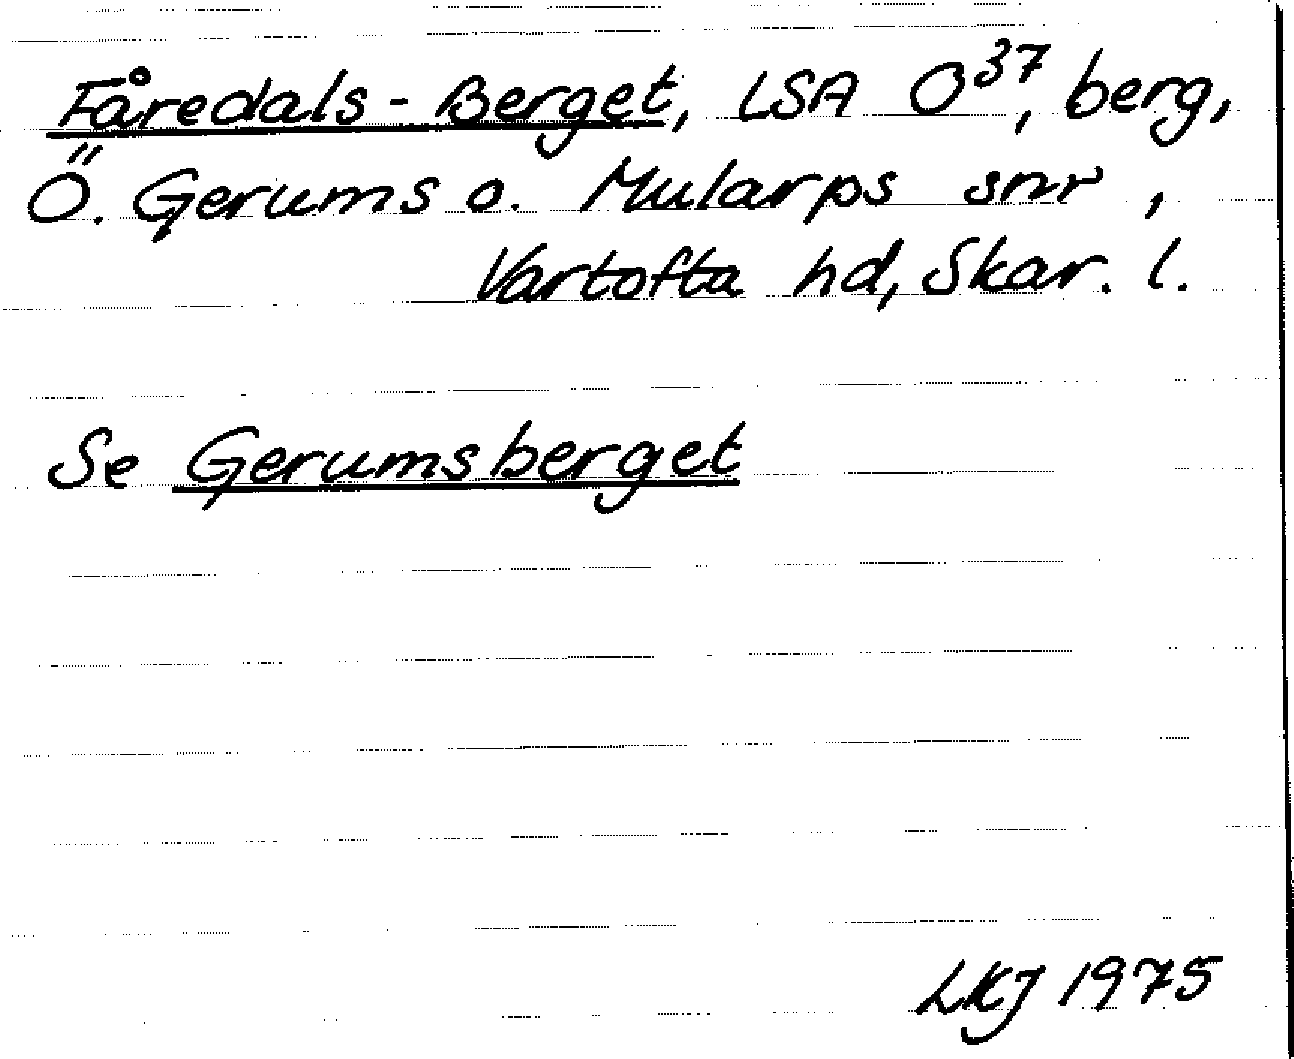 Fåredals-Berget, LSA O37, berg,
Ö. Gerums o. Mularps snr,
Vartofta hd, Skar. l.
Se Gerumsberget
LKJ 1975